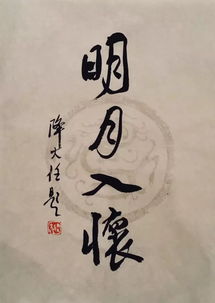 明月入懷
降大任题